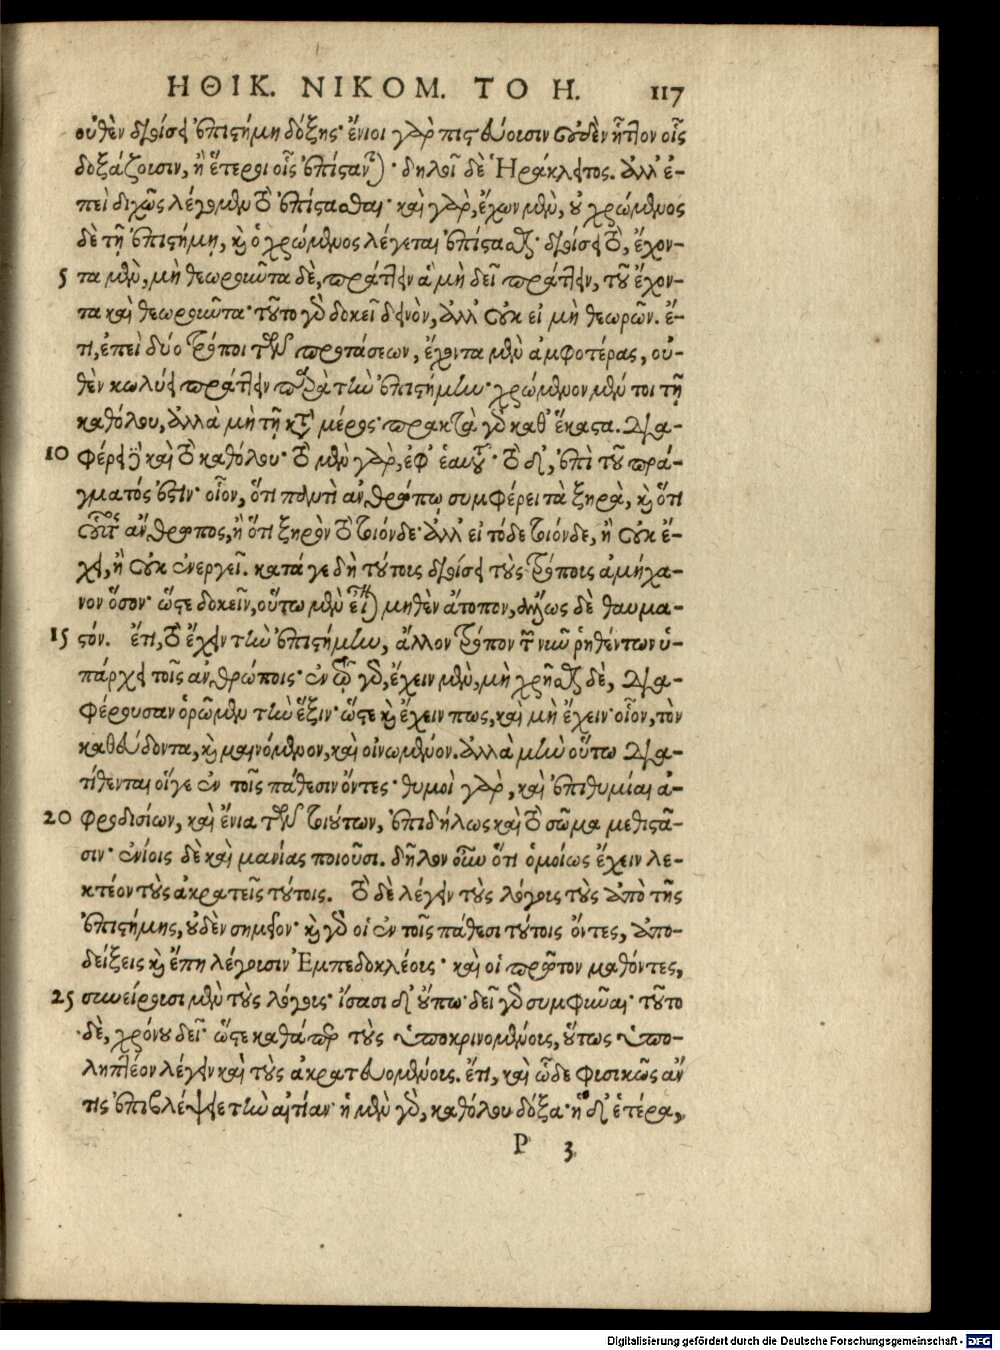 ΗΘΙΚ. ΝΙΚΟΜ. ΤΟ Η. 117
οὐθὲν διοίσει ἐπιστήμη δόξης· ἔνιοι γὰρ πιστεύουσιν οὐδὲν ἧττον οἷς
δοξάζουσιν, ἢ ἕτεροι οἷς ἐπίστανται· δηλοῖ δὲ Ἡράκλειτος. ἀλλ' ἐ-
πεὶ διχῶς λέγομεν τὸ ἐπίστασθαι· καὶ γὰρ, ἔχων μὲν, οὐ χρώμενος
δὲ τῇ ἐπιστήμῃ, καὶ ὁ χρώμενος λέγεται ἐπίστασθαι· διοίσει τὸ, ἔχον-
5 τα μὲν, μὴ θεωροῦντα δὲ, πράττειν ἃ μὴ δεῖ πράττειν, τοῦ ἔχον-
τα καὶ θεωροῦντα· τοῦτο γὰρ δοκεῖ δεινὸν, ἀλλ' οὐκ εἰ μὴ θεωρῶν. ἔ-
τι, ἐπεὶ δύο τρόποι τῶν προτάσεων, ἔχοντα μὲν ἀμφοτέρας, οὐ-
θὲν κωλύει πράττειν παρὰ τὴν ἐπιστήμην· χρώμενον μέν τοι τῇ
καθόλου, ἀλλὰ μὴ τῇ κατὰ μέρος· πρακτὰ γὰρ καθ' ἕκαστα. Δια-
10 φέρει δὲ καὶ τὸ καθόλου· τὸ μὲν γὰρ, ἐφ' ἑαυτοῦ· τὸ δ', ἐπὶ τοῦ πρά-
γματός ἐστιν· οἷον, ὅτι παντὶ ἀνθρώπῳ συμφέρει τὰ ξηρὰ, καὶ ὅτι
οὗτος ἄνθρωπος, ἢ ὅτι ξηρὸν τὸ τοιόνδε· ἀλλ' εἰ τόδε τοιόνδε, ἢ οὐκ ἔ-
χει, ἢ οὐκ ἐνεργεῖ. κατά γε δὴ τούτους διοίσει τοὺς τρόπους ἀμήχα-
νον ὅσον· ὥστε δοκεῖν, οὕτω μὲν εἶναι μηθὲν ἄτοπον, ἄλλως δὲ θαυμα-
15 στόν. ἔτι, τὸ ἔχειν τὴν ἐπιστήμην, ἄλλον τρόπον τῶν νῦν ῥηθέντων ὑ-
πάρχει τοῖς ἀνθρώποις· ἐν τῷ γὰρ, ἔχειν μὲν, μὴ χρῆσθαι δὲ, Δια-
φέρουσαν ὁρῶμεν τὴν ἕξιν· ὥστε καὶ ἔχειν πως, καὶ μὴ ἔχειν· οἷον, τὸν
καθεύδοντα, καὶ μαινόμενον, καὶ οἰνωμένον. ἀλλὰ μὴν οὕτω Δια-
τίθενται οἵγε ἐν τοῖς πάθεσιν ὄντες· θυμοὶ γὰρ, καὶ ἐπιθυμίαι ἀ-
20 φροδισίων, καὶ ἔνια τῶν τοιούτων, ἐπιδήλως καὶ τὸ σῶμα μεθιστᾶ-
σιν· ἐνίοις δὲ καὶ μανίας ποιοῦσι. δῆλον οὖν ὅτι ὁμοίως ἔχειν λε-
κτέον τοὺς ἀκρατεῖς τούτοις. τὸ δὲ λέγειν τοὺς λόγους τοὺς ἀπὸ τῆς
ἐπιστήμης, οὐδὲν σημεῖον· καὶ γὰρ οἱ ἐν τοῖς πάθεσι τούτοις ὄντες, ἀπο-
δείξεις καὶ ἔπη λέγουσιν Ἐμπεδοκλέους· καὶ οἱ πρῶτον μαθόντες,
25 συνείρουσι μὲν τοὺς λόγους· ἴσασι δ' οὔπω· δεῖ γὰρ συμφυῆναι· τούτο
δὲ, χρόνου δεῖ· ὥστε καθάπερ τοὺς ὑποκρινομένους, οὕτως ὑπο-
ληπτέον λέγειν καὶ τοὺς ἀκρατευομένους. ἔτι, καὶ ὧδε φισικῶς ἄν
τις ἐπιβλέψειε τὴν αἰτίαν· ἡ μὲν γὰρ, καθόλου δόξα· ἡ δ' ἑτέρα,
P 3
Digitalisierung gefördert durch die Deutsche Forschungsgemeinschaft - DFG